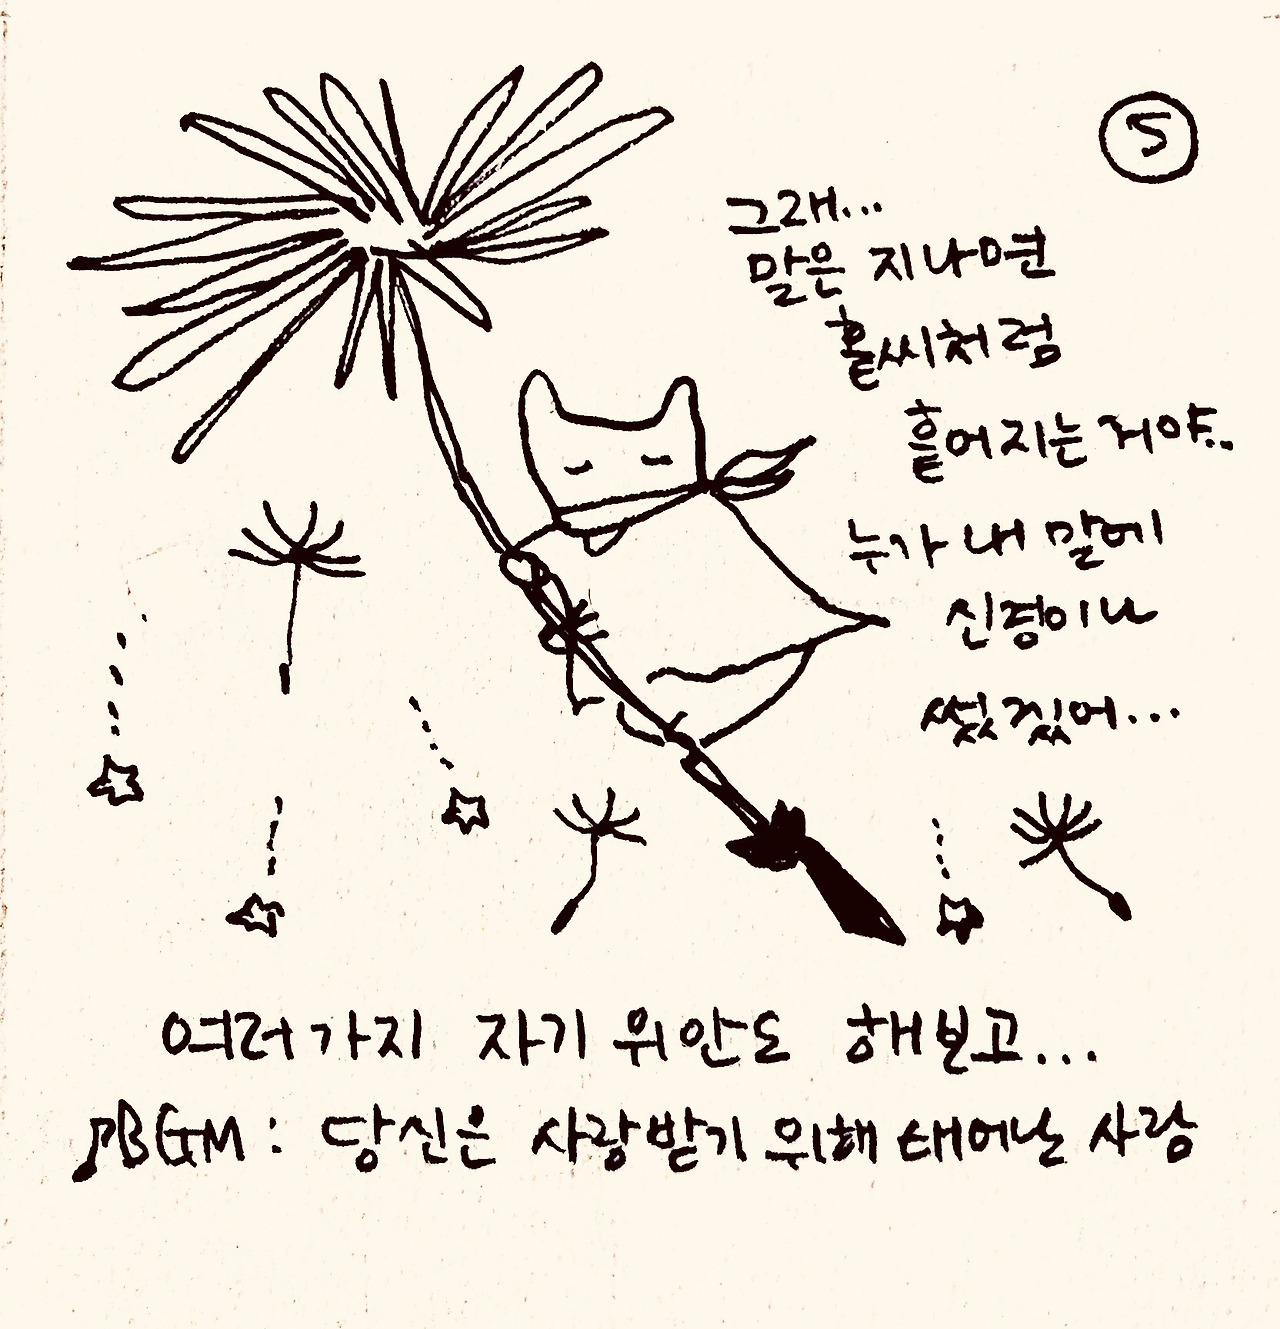 ⑤
그래...
말은 지나면
홑씨처럼
흩어지는 거야..
누가 내 말에
신경이나
썼겠어...
여러가지 자기 위안도 해보고...
♪BGM : 당신은 사랑받기 위해 태어난 사람